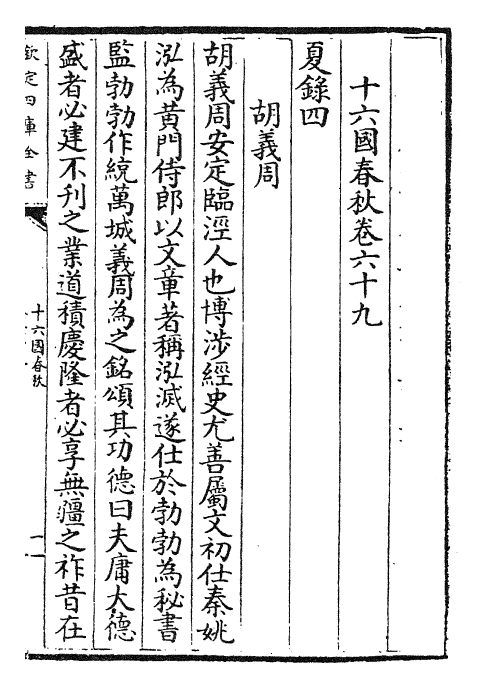 十六國春秋卷六十九
夏錄四
胡義周
胡義周安定臨涇人也博涉經史尤善屬文初仕秦姚
泓為黃門侍郎以文章著稱泓滅遂仕於勃勃為秘書
監勃勃作統萬城義周為之銘頌其功德曰夫庸大德
盛者必建不刋之業道積慶隆者必享無疆之祚昔在
欽定四庫全書
十六國春秋
一